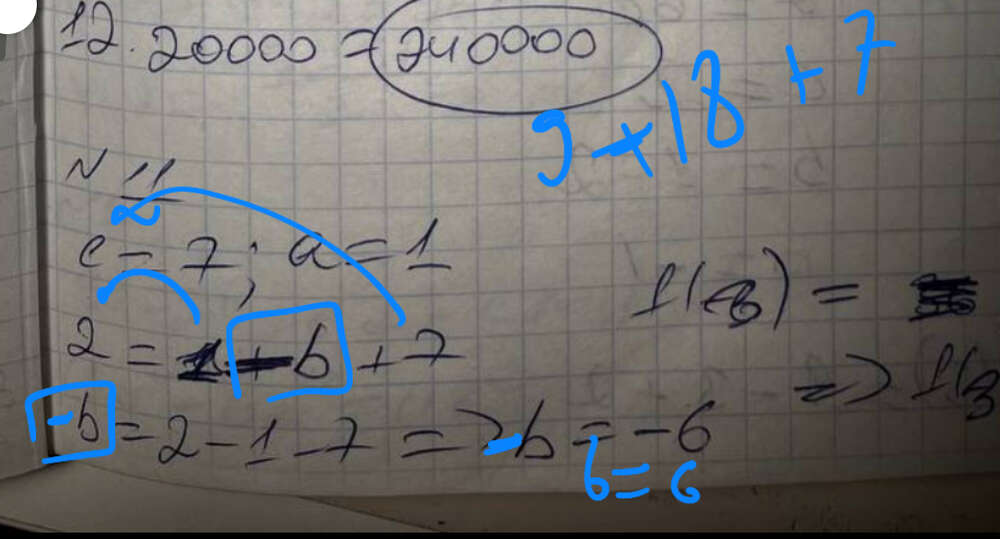 12 · 20000 = 240000
9 + 18 + 7
N 11
c = 7; a = 1
2 = 1 - b + 7
-b = 2 - 1 - 7 => -b = -6
b = 6
f(3) =
=> f(3